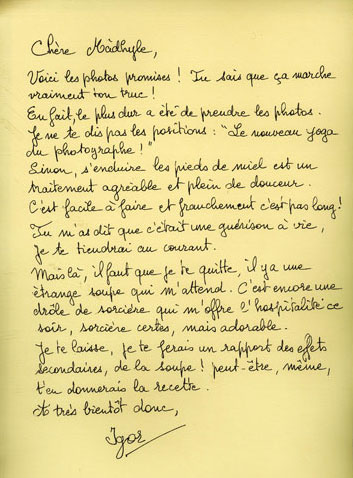 Chère Mâdhyle,
Voici les photos promises ! Tu sais que ça marche
vraiment ton truc !
En fait, le plus dur a été de prendre les photos.
Je ne te dis pas les positions : "Le nouveau yoga
du photographe !"
Sinon, s'enduire les pieds de miel est un
traitement agréable et plein de douceur.
C'est facile à faire et franchement c'est pas long !
Tu m'as dit que c'était une guérison à vie,
je te tiendrai au courant.
Mais là, il faut que je te quitte, il y a une
étrange soupe qui m'attend. C'est encore une
drôle de sorcière qui m'offre l'hospitalité ce
soir, sorcière certes, mais adorable.
Je te laisse, je te ferais un rapport des effets
secondaires, de la soupe ! peut-être, même,
t'en donnerais la recette.
A très bientôt donc,
Igor